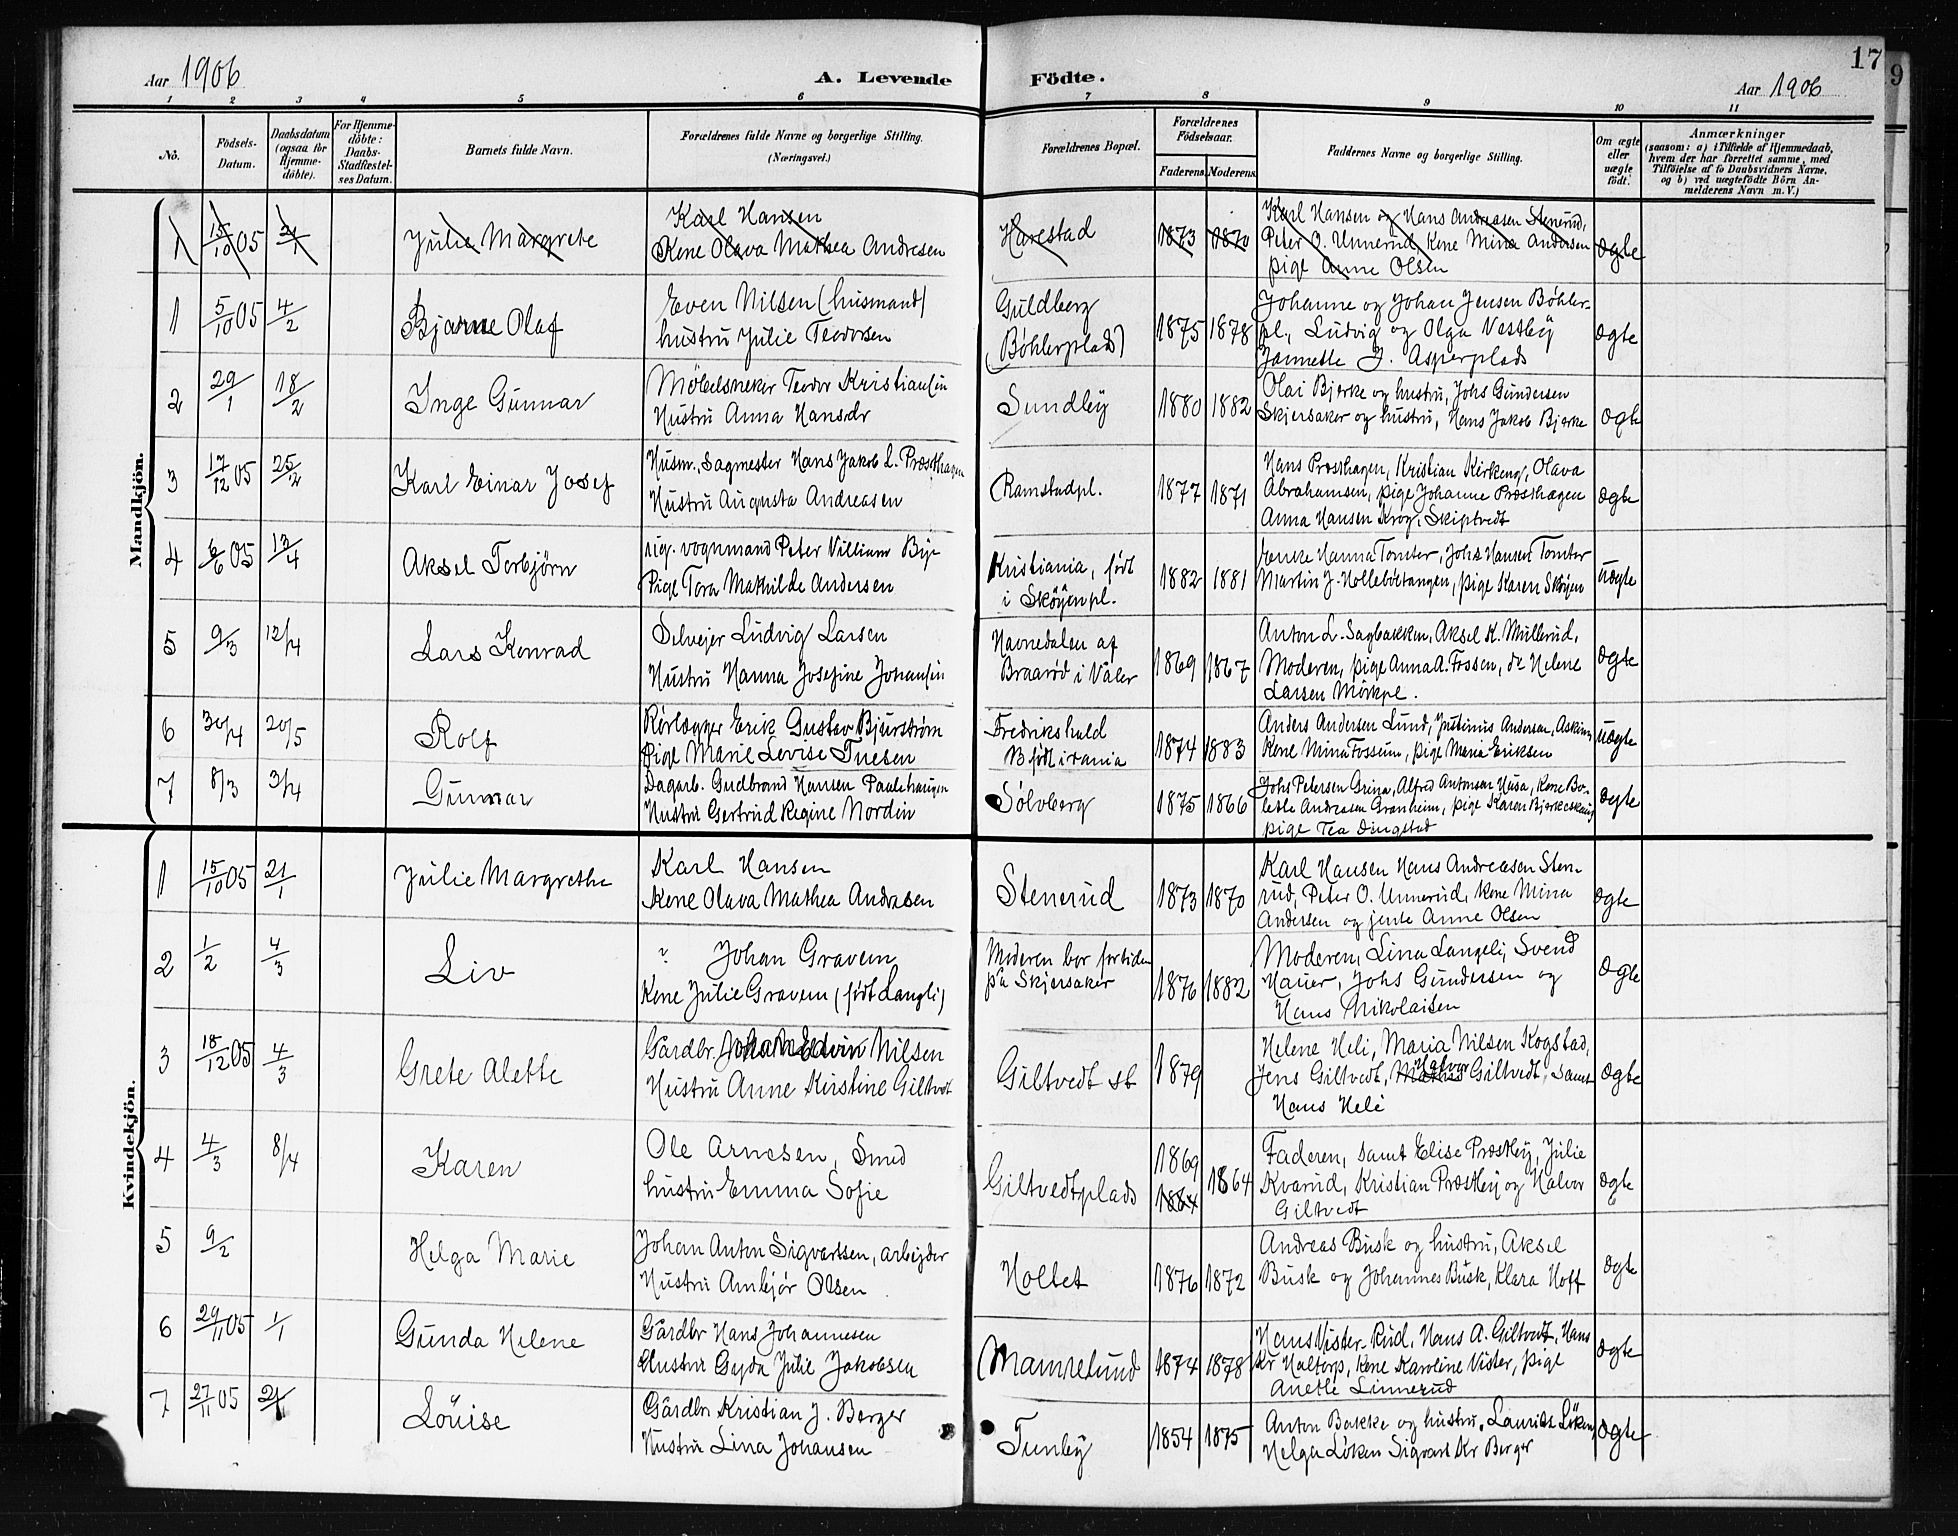 17
9
Aar 1906
A. Levende Födte.
Aar 1906
1 2 3 4 5 6 7 8 9 10 11
No.
Födsels-Datum.
Daabsdatum (ogsaa for Hjemme-döbte).
For Hjemme-döbte: Daabs-Stadfæstel-ses Datum.
Barnets fulde Navn.
Forældrenes fulde Navne og borgerlige Stilling.
(Næringsvei.)
Forældrenes Bopæl.
Forældrenes Födselsaar.
Faderens Moderens
Faddernes Navne og borgerlige Stilling.
Om ægte eller uægte født.
Anmærkninger
(saasom: a) i Tilfælde af Hjemmedaab, hvem der har forrettet samme, med Tilföielse af to Daabsvidners Navne, og b) ved uægtefödte Börn An-melderens Navn m. V.)
Mandkjön.
1 15/10 05 21/1 Julie Margrete
Karl Hansen
Kone Olava Mathea Andresen
Harestad 1873 1870
Karl Hansen og Hans Andreasen Stenerud,
Peter O. Unnerud, Kone Mina Andersen
pige Anne Olsen
ægte
1 5/10 05 4/2 Bjarne Olaf
Even Nilsen (husmand)
hustru Julie Teodorsen
Guldberg
(Böhlerplads)
1875 1878
Johanne og Johan Jensen Böhler-
pl., Ludvig og Olga Vestby
Jannette J. Asperplads
ægte
2 29/1 18/2 Inge Gunnar
Möbelsneker Teodor Kristiansen
Hustru Anna Hansdr
Sundby 1880 1882
Olai Bjerke og hustru, Johs Gundersen
Skjersaker og hustru, Hans Jakob Bjerke
ægte
3 17/12 05 25/2 Karl Einar Josef
Husm., Sagmester Hans Jakob L. Præsthagen
Hustru Augusta Andreasen
Ramstadpl. 1877 1871
Hans Præsthagen, Kristian Kirkeng, Olava
Abrahamsen, pige Johanne Præsthagen
Anna Hansen Krog, Skiptvedt
ægte
4 6/6 05 17/4 Aksel Torbjörn
vognmand Peter Villiam Bye
Pige Tora Mathilde Andersen
Kristiania, födt
i Sköyenpl.
1882 1881
Enke Hanna Tomter, Johs Hansen Tomter
Martin J. Holleböltangen, pige Karen Sköyen
uægte
5 9/3 12/4 Lars Konrad
Selvejer Ludvig Larsen
Hustru Hanna Josefine Johansen
Havnedalen af
Braaröd i Våler
1869 1867
Anton L. Sagbakken, Aksel K. Mullerud,
Moderen, pige Anna A. Fossen, do Helene
Larsen Mörkpl.
ægte
6 30/4 20/5 Rolf
Rörlægger Erik Gustav Bjurström
Pige Marie Levise Tuesen
Fredrikshald
1874 1883
Anders Andersen Lund, Justinus Andersen, Askim,
Kone Mina Fossum, pige Maria Eriksen
uægte
7 8/3 3/4 Gunnar
Dagarb. Gudbrand Hansen Paulshaugen
Hustru Gertrud Regine Nordin
Sölvberg 1875 1866
Johs Petersen Grina, Alfred Antonsen Husa, Kone Bo-
lette Andresen Granheim, pige Karen Bjerkeskaug
pige Tea Dingstad
ægte
Kvindekjön.
1 15/10 05 21/1 Julie Margrethe
Karl Hansen
Kone Olava Mathea Andresen
Stenerud 1873 1870
Karl Hansen Hans Andreasen Sten-
rud, Peter O. Unnerud, Kone Mina
Andersen og jente Anne Olsen
ægte
2 1/2 4/3 Liv
? Johan Gravem
Kone Julie Gravem (födt Langli)
Moderen bor fortiden
på Skjersaker
1876 1882
Moderen, Lina Langeli, Svend
Hauer, Johs Gundersen og
Hans Nikolaisen
ægte
3 18/12 05 4/3 Grete Alette
Gårdbr. Johan Edvin Nilsen
Hustru Anne Kirstine Giltvedt
Giltvedt st 1879
Helene Heli, Maria Nilsen Kogstad,
Jens Giltvedt, Halvor Giltvedt, samt
Hans Heli
ægte
4 4/3 8/4 Karen
Ole Arnesen, Smed
hustru Emma Sofie
Giltvedtplads 1869 1864 1864
Faderen, samt Elise Præstby, Julie
Kvarud, Kristian Præstby og Halvor
Giltvedt
ægte
5 9/2 Helga Marie
Johan Anton Sigvartsen, arbejder
Hustru Ambjör Olsen
Holtet 1876 1872
Andreas Busk og hustru, Aksel
Busk og Johannes Busk, Klara Hoff
ægte
6 29/11 05 1/1 Gunda Helene
Gårdbr Hans Johannesen
Hustru Gyda Julie Jakobsen
Mamrelund 1874 1878
Hans Vister-Rud, Hans A. Giltvedt, Hans
Kr Haltorp, Kone Karoline Vister, pige
Anette Linnerud
ægte
7 27/11 05 21/1 Louise
Gårdbr Kristian J. Berger
Hustru Lina Johansen
Tunby 1854 1875
Anton Bakke og hustru, Laurits Löken,
Helga Löken Sigvart Kr Berger
ægte